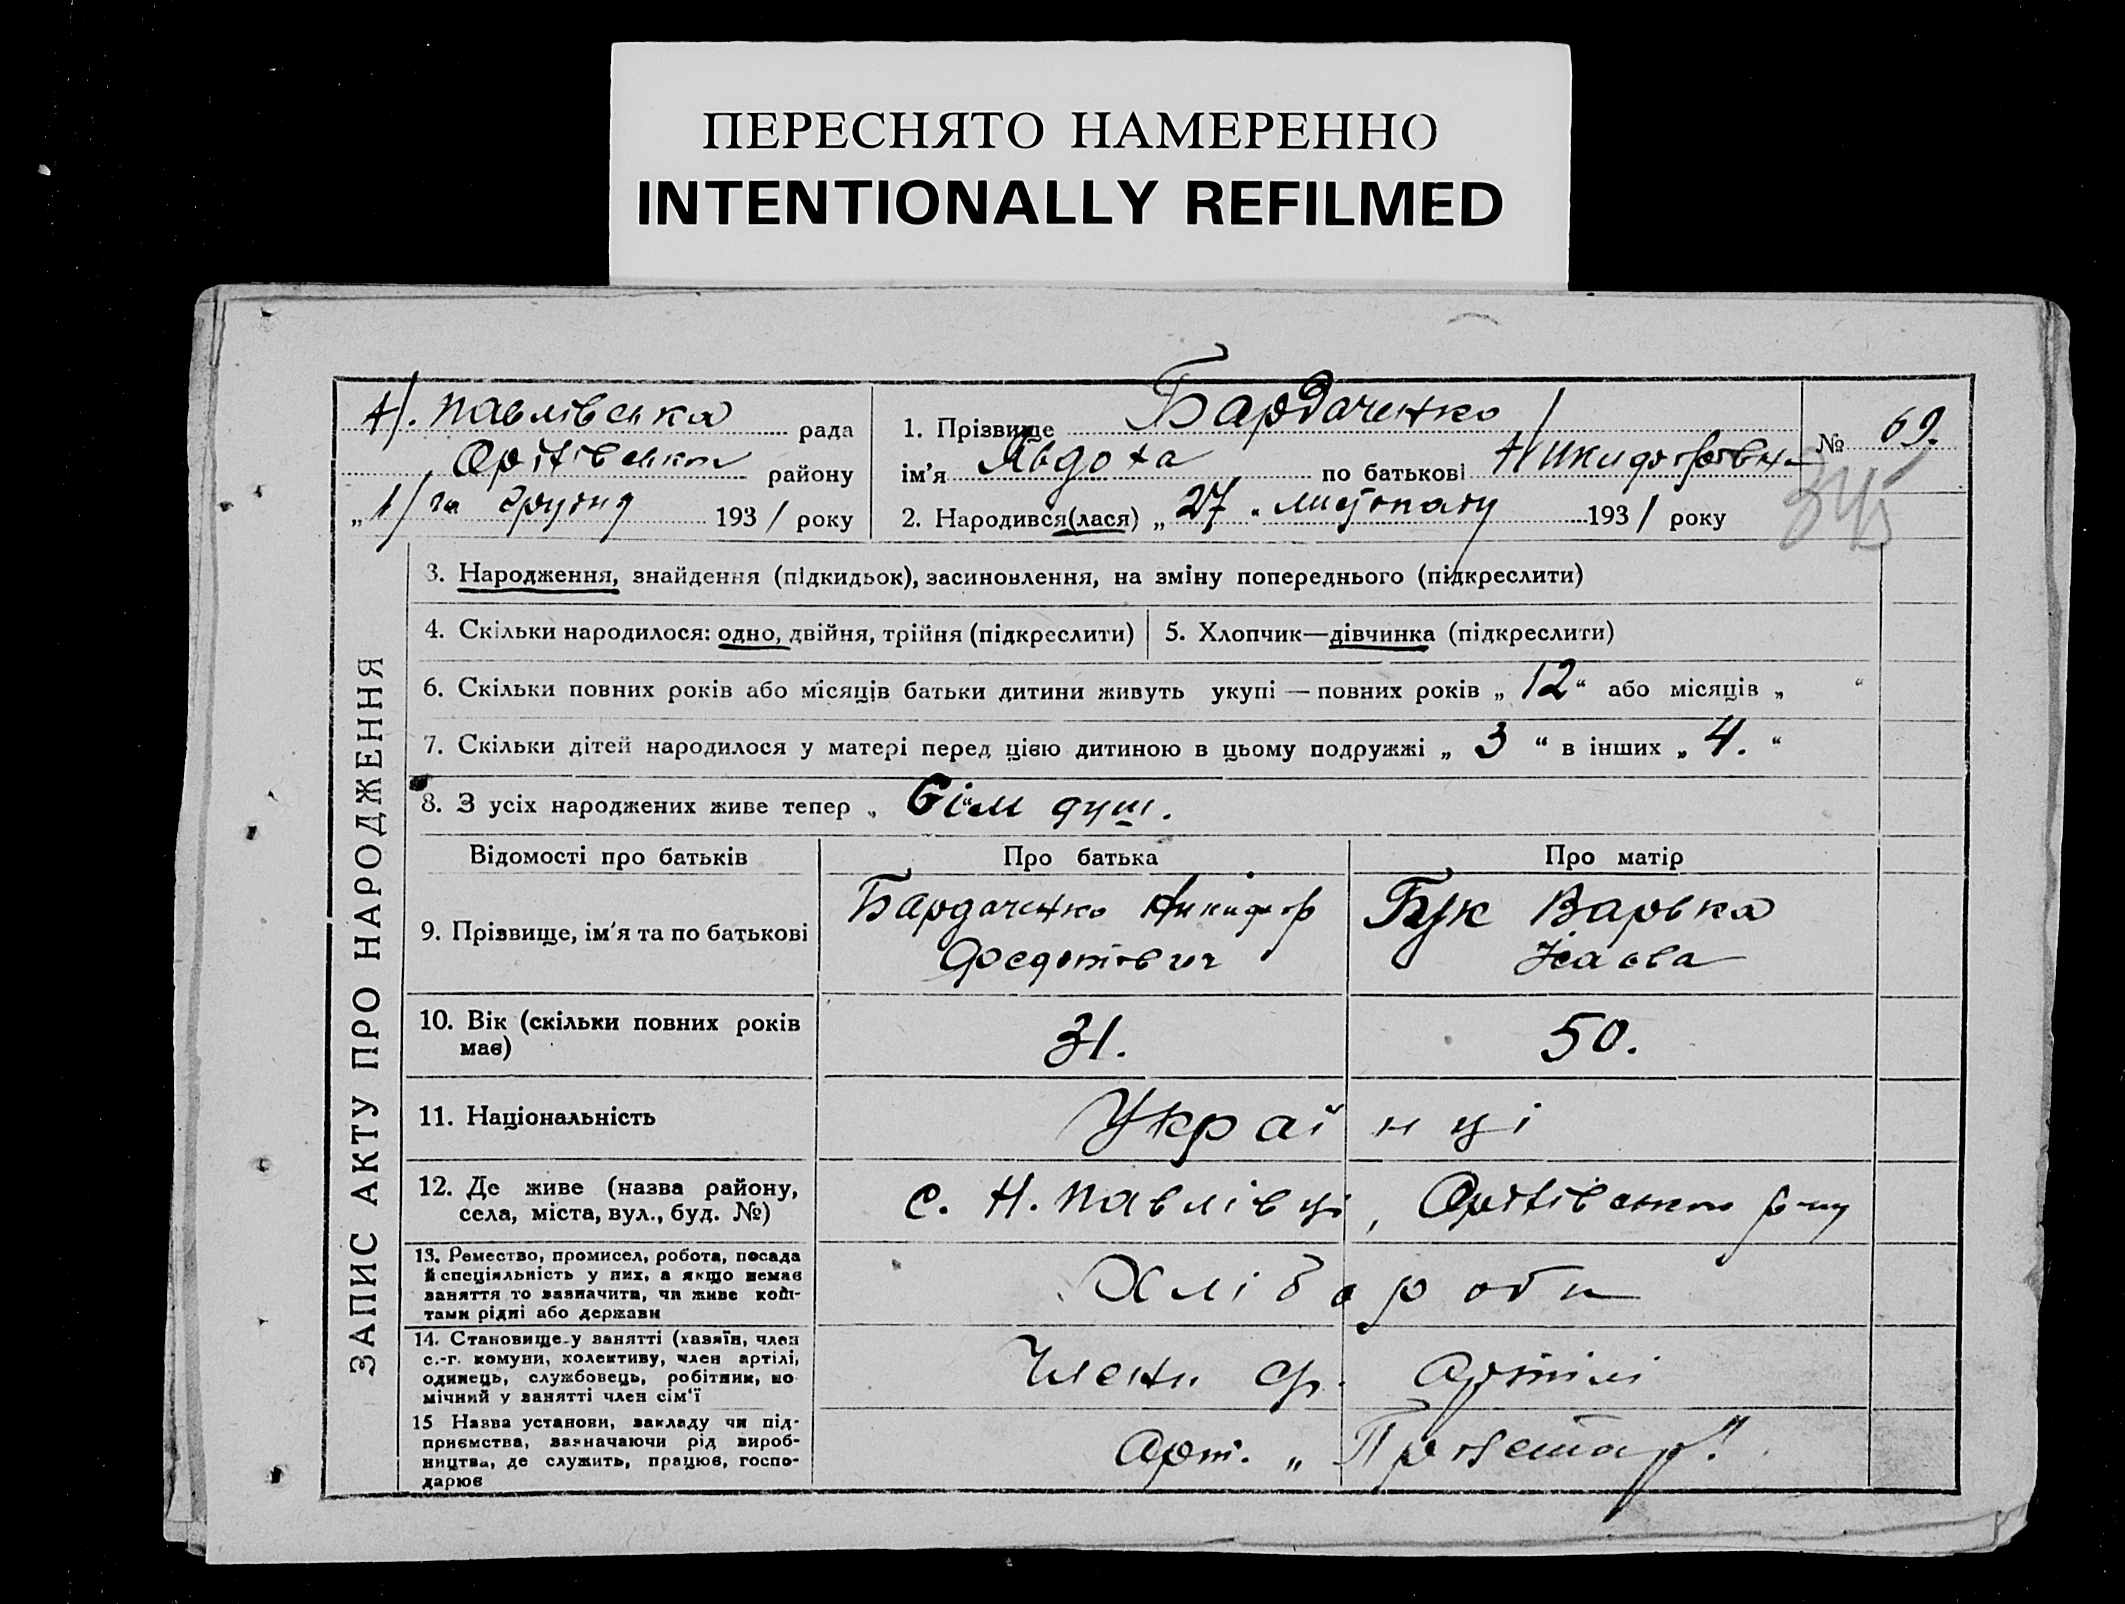 ПЕРЕСНЯТО НАМЕРЕННО
INTENTIONALLY REFILMED
Н. Павлівська рада
району
„1/го грудня 1931 року
1. Прізвище Бардаченко
ім'я Явдоха по батькові Никифоровна
2. Народився(лася) „27" листопаду 1931 року
№ 69.
345
ЗАПИС АКТУ ПРО НАРОДЖЕННЯ
3. Народження, знайдення (підкидьок), засиновлення, на зміну попереднього (підкреслити)
4. Скільки народилося: одно, двійня, трійня (підкреслити)
5. Хлопчик—дівчинка (підкреслити)
6. Скільки повних років або місяців батьки дитини живуть укупі — повних років „12" або місяців „ "
7. Скільки дітей народилося у матері перед цією дитиною в цьому подружжі „3" в інших „4."
8. З усіх народжених живе тепер „Сім душ.
Відомості про батьків
Про батька
Про матір
9. Прізвище, ім'я та по батькові
Бардаченко Никифор
Федотович
Бук Варька
10. Вік (скільки повних років
має)
31.
50.
11. Національність
Українці
12. Де живе (назва району,
села, міста, вул., буд. №)
с. Н. Павлівці, р-ну
13. Ремество, промисел, робота, посада
й спеціяльність у них, а якщо немає
заняття то зазначити, чи живе кош-
тами рідні або держави
Хлібороби
14. Становище у занятті (хазяїн, член
с.-г. комуни, колективу, член артілі,
одинець, службовець, робітник, по
мічний у занятті член сім'ї
Члени ср. артілі
15 Назва установи, закладу чи під-
приємства, зазначаючи рід вироб-
ництва, де служить, працює, госпо-
дарює
Арт. „Пролетар".